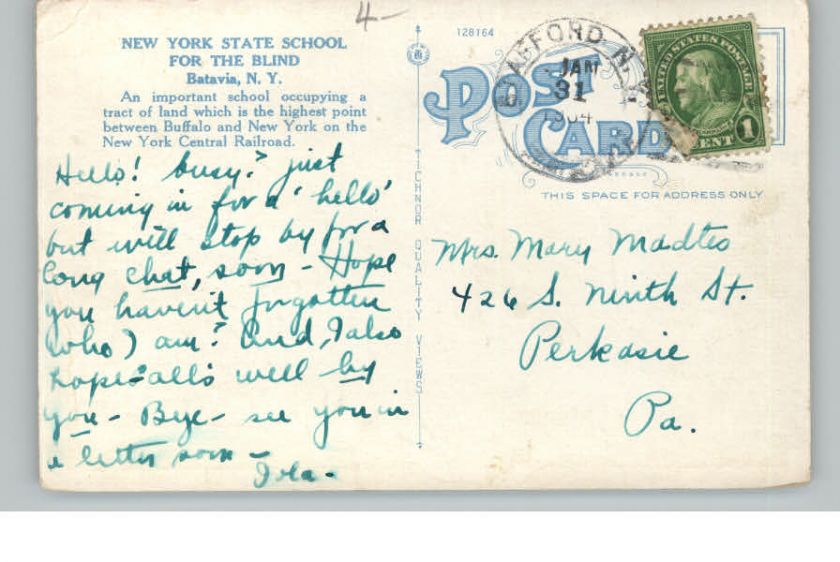 4-
NEW YORK STATE SCHOOL
FOR THE BLIND
Batavia, N. Y.
An important school occupying a
tract of land which is the highest point
between Buffalo and New York on the
New York Central Railroad.
Hello! busy? just
coming in for a 'hello'
but will stop by for a
long chat, soon - Hope
you haven't forgotten
who I am? And, I also
hope all's well by
you - Bye - see you in
a letter soon -
Iola -
TICHNOR QUALITY VIEWS
128164
POST
CARD
STAFFORD N.Y.
JAN
31
UNITED STATES POSTAGE
1 CENT 1
THIS SPACE FOR ADDRESS ONLY
Mrs. Mary Madtes
426 S. Ninth St.
Perkasie
Pa.